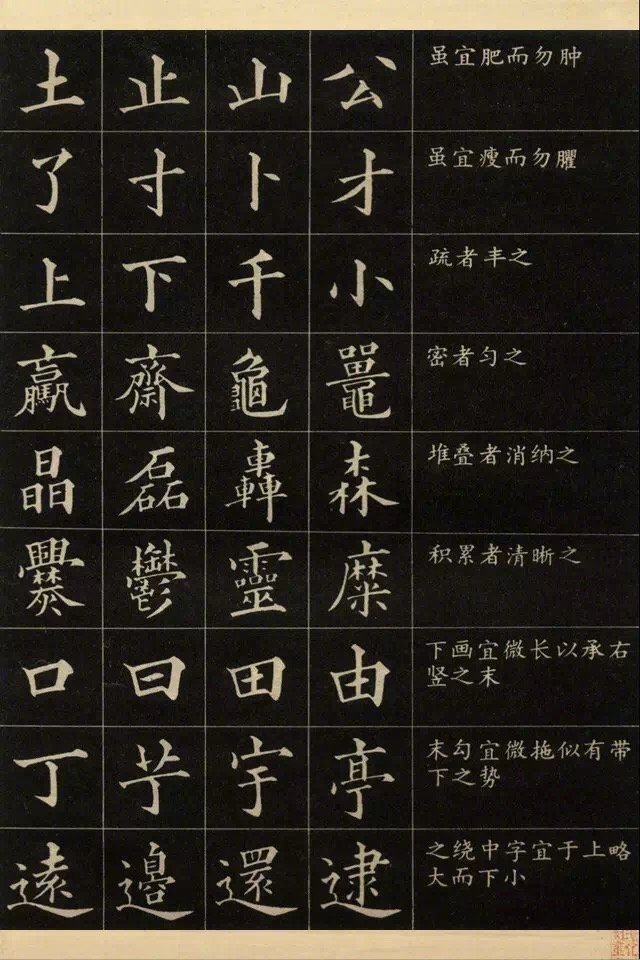 土 止 山 公 虽宜肥而勿肿
了 寸 卜 才 虽宜瘦而勿臞
上 下 千 小 疏者丰之
驘 齋 龜 鼉 密者匀之
晶 磊 轟 森 堆叠者消纳之
爨 鬱 靈 糜 积累者清晰之
口 曰 田 由 下画宜微长以承右
竖之末
丁 芋 宇 亭 末勾宜微拖似有带
下之势
遠 邊 還 逮 之绕中字宜于上略
大而下小